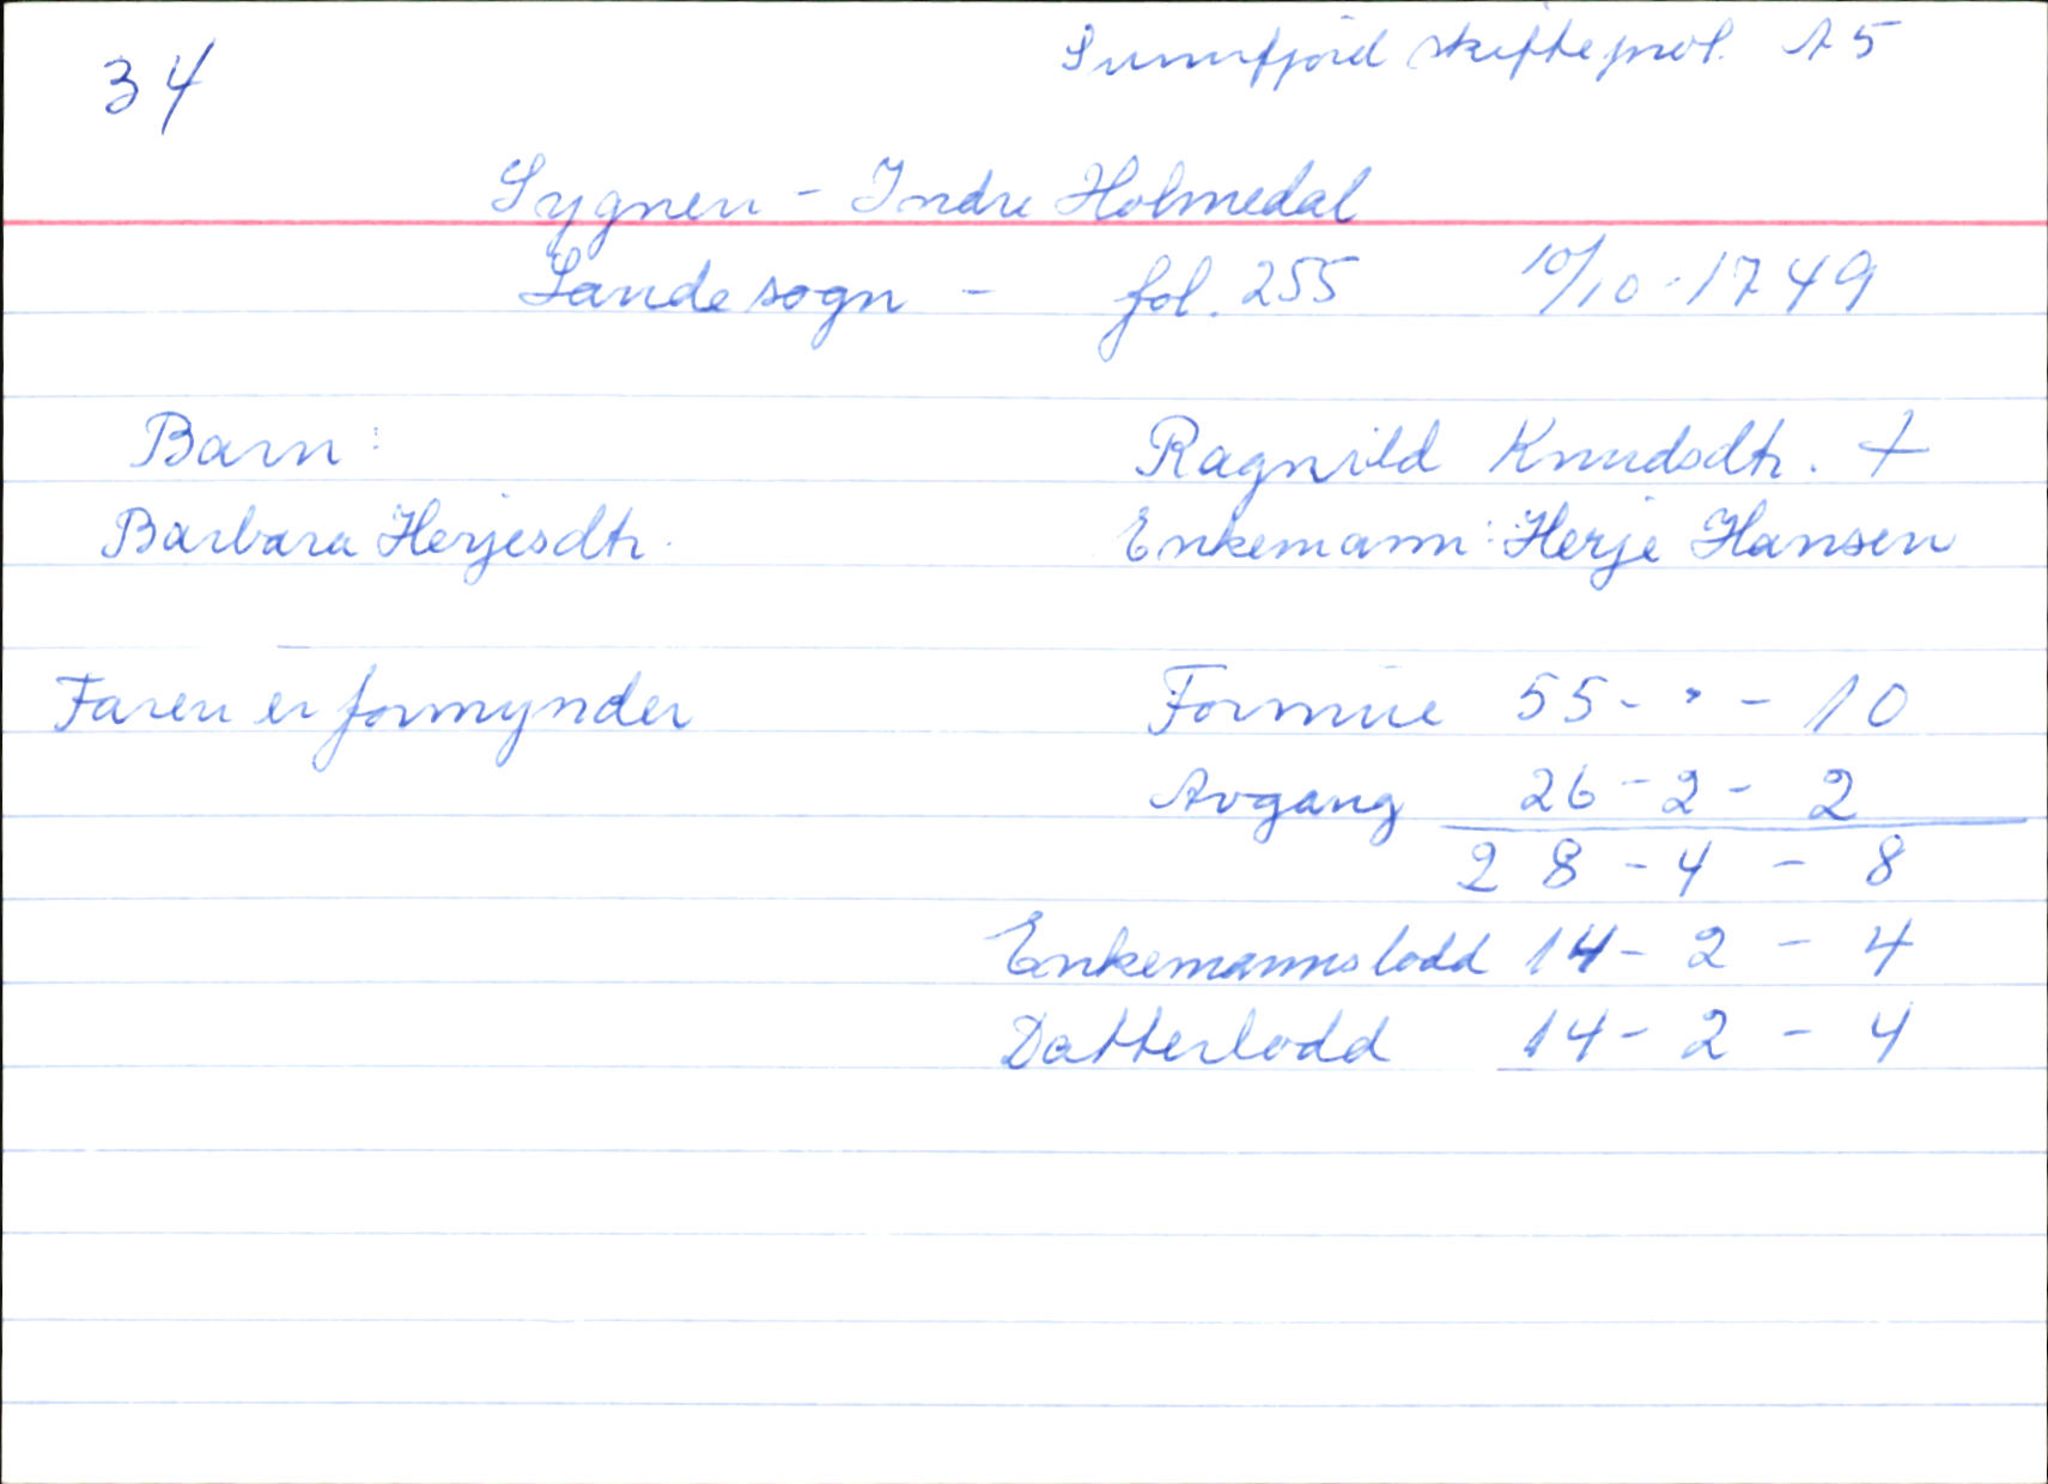 34
Sunnfjord skifteprot. A5
Sygnen - Indre Holmedal
Sande sogn - fol. 255 10/10-1749
Barn:
Ragnild Knudsdtr. +
Barbara Herjesdtr.
Enkemann: Herje Hansen
Faren er formynder
Formue 55 - " - 10
Avgang 26 - 2 - 2
28 - 4 - 8
Enkemannslodd 14 - 2 - 4
Datterlodd 14 - 2 - 4